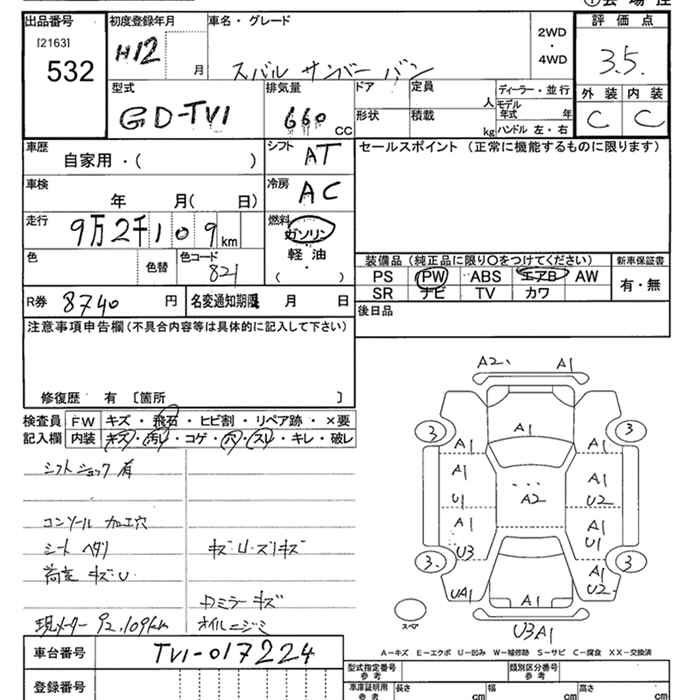 ①会場控
出品番号
[2163]
532
初度登録年月
H12
月
車名・グレード
スバル サンバー バン
2WD
・
4WD
評価点
3.5.
外装 内装
C C
型式
GD-TV1
排気量
660 cc
ドア
定員
人
形状
積載
kg
ディーラー・並行
モデル年式 年
ハンドル 左・右
車歴
自家用・( )
シフト
AT
車検
年 月( 日)
冷房
AC
走行
9万2千109km
燃料
ガソリン
・
軽油
( )
色
色替
色コード
821
セールスポイント (正常に機能するものに限ります)
装備品 (純正品に限り○をつけてください)
新車保証書
PS PW ABS エアB AW
SR ナビ TV カワ
有・無
R券 8740 円
名変通知期限 月 日
後日品
注意事項申告欄(不具合内容等は具体的に記入して下さい)
修復歴 有 [箇所 ]
検査員記入欄
FW キズ・飛石・ヒビ割・リペア跡・×要
内装 キズ・汚レ・コゲ・穴・スレ・キレ・破レ
シフトショック有
コンソール 加工穴
シート ヘタリ
荷室 キズ・U
現メーター 92,109km
キズ・U・スリキズ
ミラーキズ
オイルニジミ
A2. A1
3 A1 A1 A1 3
A1 A1
U1 A2 U2
A1 A1
U3 U1
3. A1 3
UA1 A1 U2
スペア
U3A1
A－キズ E－エクボ U－凹み W－補修跡 S－サビ C－腐食 XX－交換済
車台番号
TV1-017224
登録番号
型式指定番号 参考
類別区分番号 参考
車庫証明用 参考
長さ cm
幅 cm
高さ cm